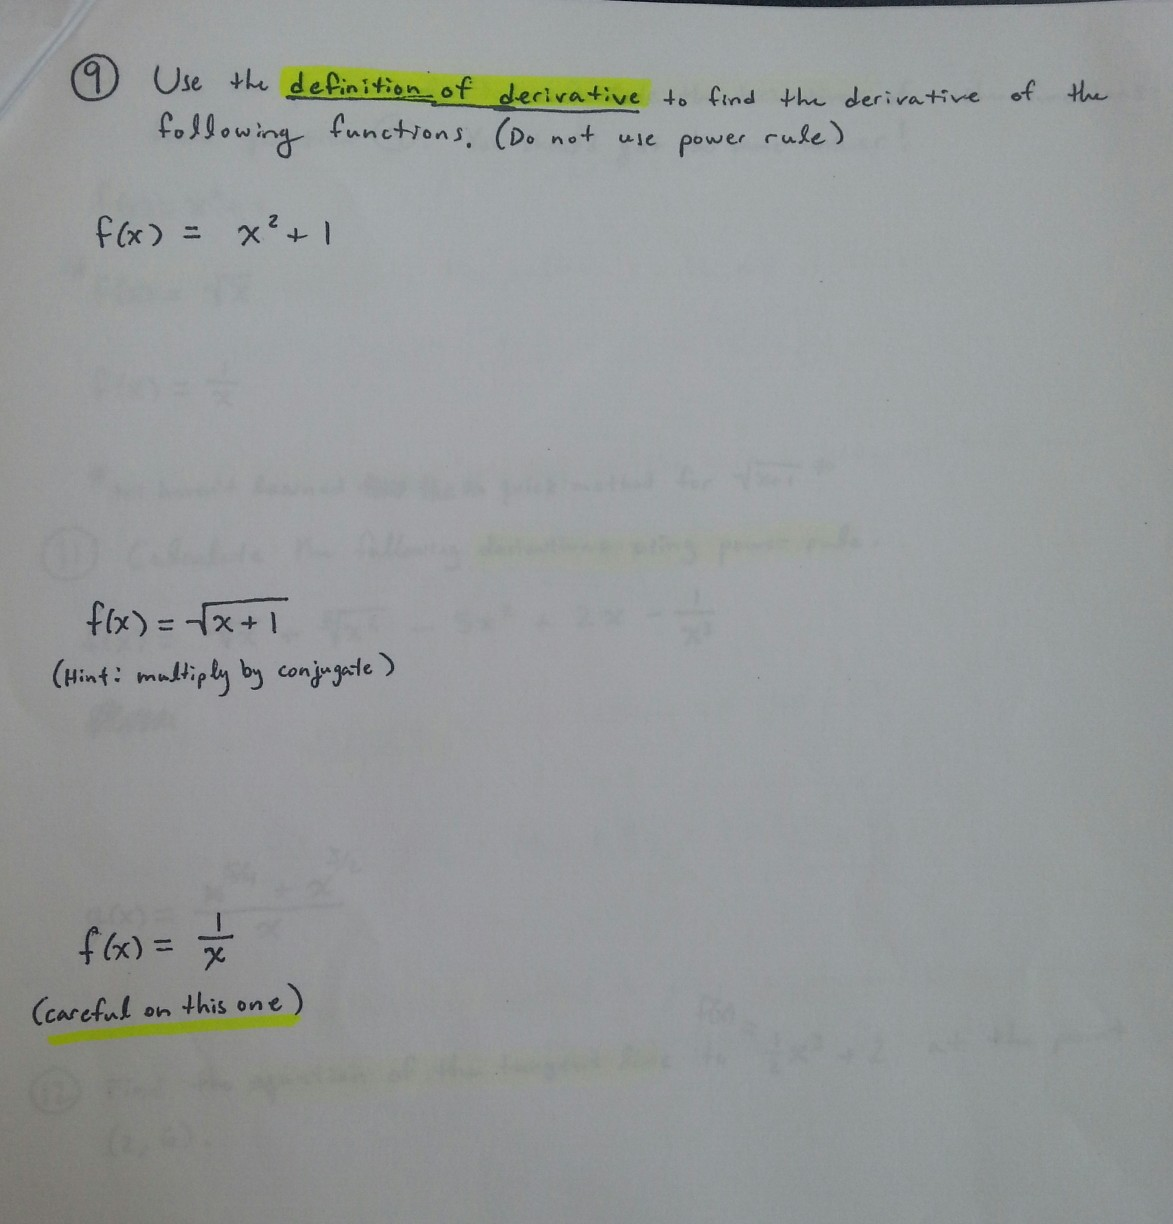 9 Use the definition of derivative to find the derivative of the
following functions. (Do not use power rule)
f(x) = x² + 1
f(x) = √x+1
(Hint: multiply by conjugate)
f(x) = 1/x
(careful on this one)